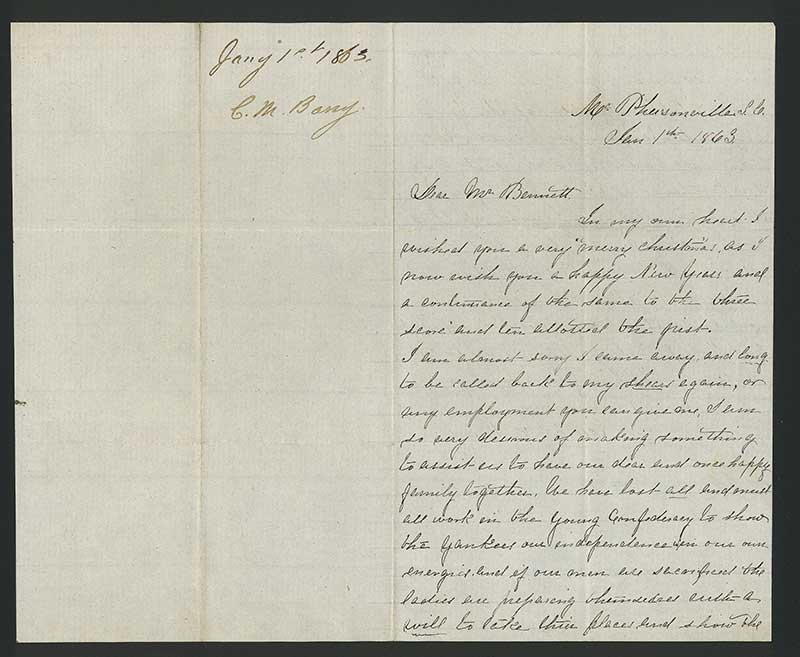 Jany 1st 1863.
C. M. Barry.
Mc Phersonville S. C.
Jan 1th 1863
Dear Mr Bennett
In my own heart I
wished you a very "merry Christmas, as I
now wish you a happy New Years and
a continuance of the same to the three
score and ten allotted the just.
I am almost sorry I came away and long
to be called back to my shears again, or
any employment you can give me, I am
so very desirous of making something
to assist us to have our dear and once happy
family together. We have lost all and must
all work in the Young Confederacy to show
the Yankees our independence in our own
energies. And if our men are sacrificed the
ladies are preparing themselves with a
will to take their places and show the